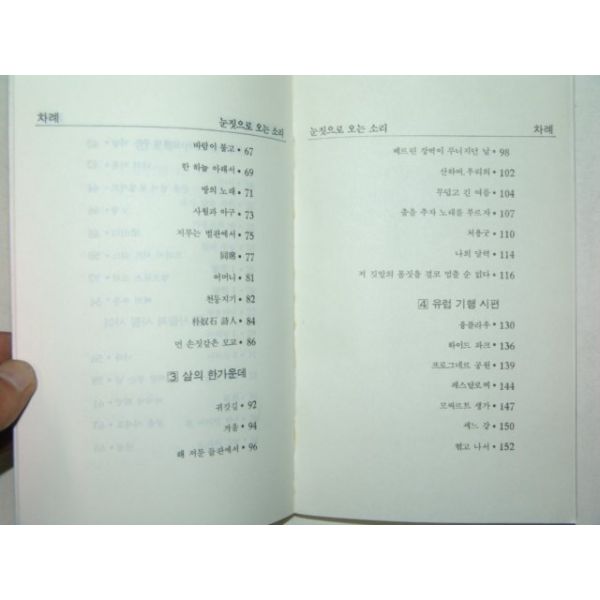 차례
눈짓으로 오는 소리
바람이 불고 • 67
한 하늘 아래서 • 69
땅의 노래 • 71
사월과 야구 • 73
저무는 벌판에서 • 75
同窓 • 77
어머니 • 81
천둥지기 • 82
朴奴石 詩人 • 84
먼 손짓같은 모교 • 86
3 삶의 한가운데
귀갓길 • 92
겨울 • 94
해 저문 들판에서 • 96
눈짓으로 오는 소리
차례
베르린 장벽이 무너지던 날 • 98
산하여, 우리의 • 102
무덥고 긴 여름 • 104
춤을 추자 노래를 부르자 • 107
처용굿 • 110
나의 달력 • 114
저 깃발의 몸짓을 결코 멈출 순 없다 • 116
4 유럽 기행 시편
융플라우 • 130
하이드 파크 • 136
프로그네르 공원 • 139
페스탈로찌 • 144
모짜르트 생가 • 147
세느 강 • 150
엮고 나서 • 152